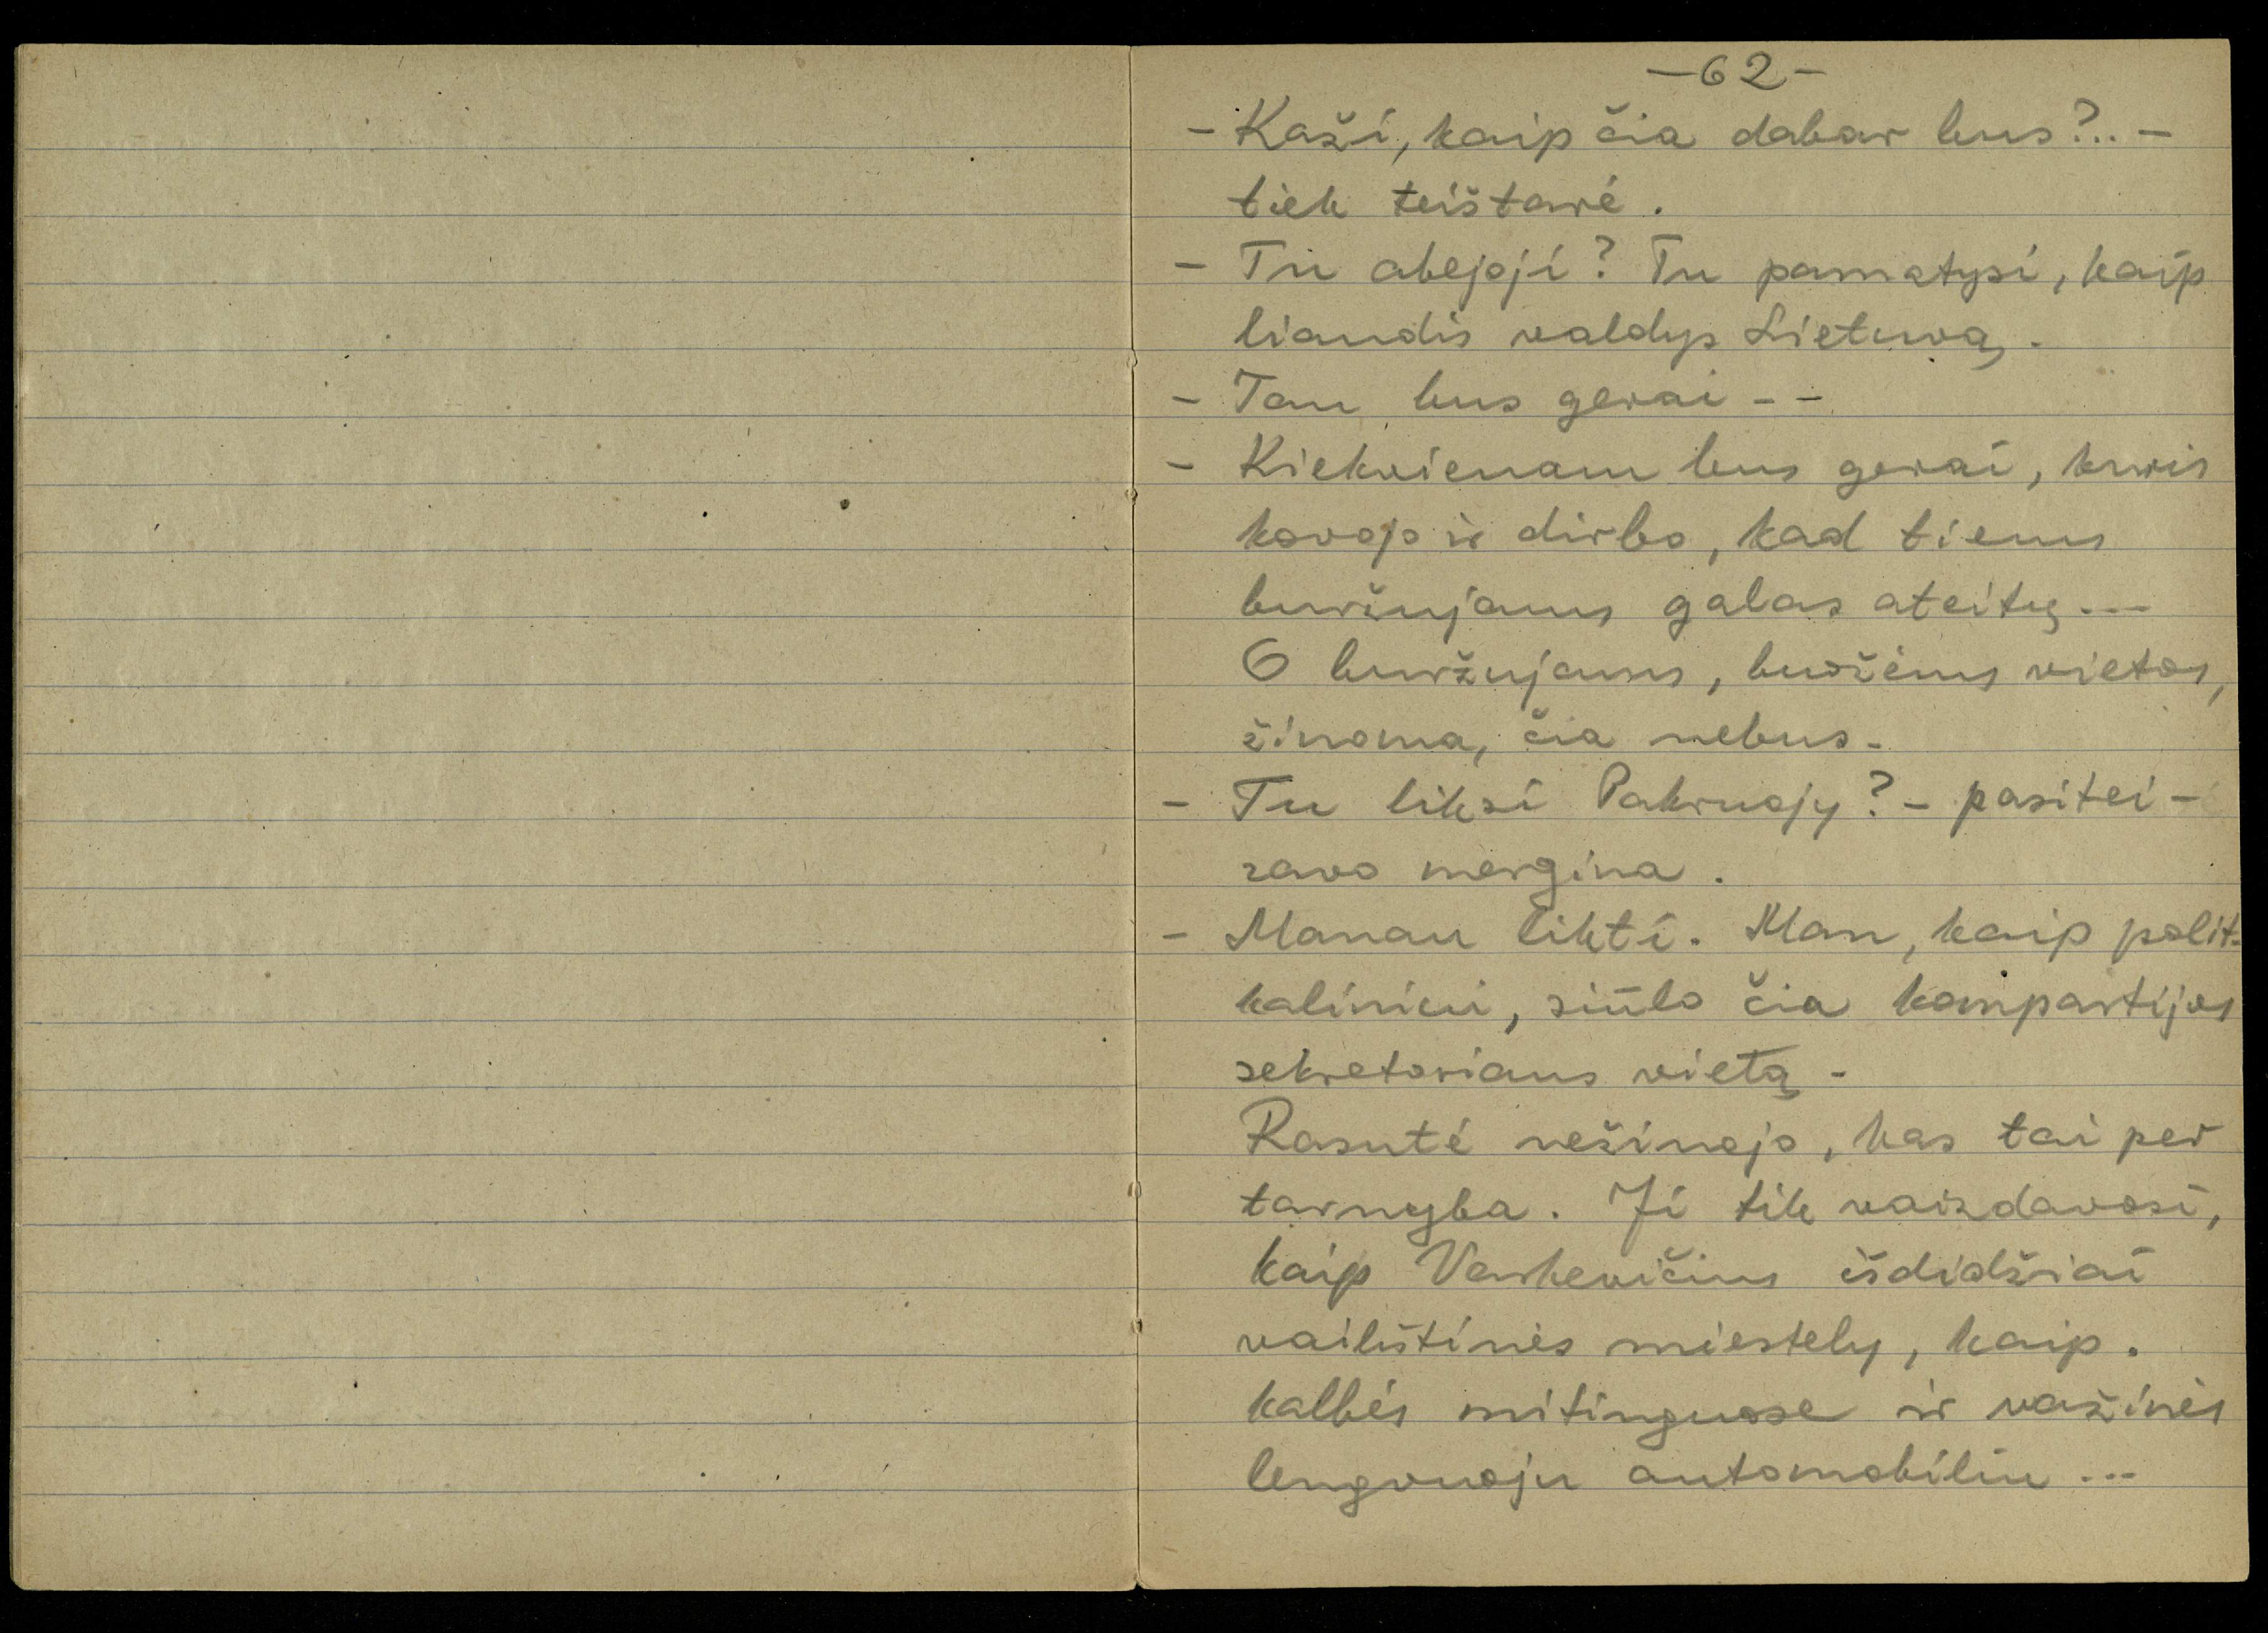 -62-
- Kaži, kaip čia dabar bus?.. -
tiek teištarė.
- Tu abejoji? Tu pamatysi, kaip
liaudis valdys Lietuvą.
- Tau bus gerai - -
- Kiekvienam bus gerai, kuris
kovojo ir dirbo, kad tiems
buržujams galas ateitų...
O buržujams, buožėms vietos,
žinoma, čia nebus.
- Tu liksi Pakruojy? - pasitei-
ravo mergina.
- Manau likti. Man, kaip polit-
kaliniui, siūlo čia kompartijos
sekretoriaus vietą -
Rasutė nežinojo, kas tai per
tarnyba. Ji tik vaizdavosi,
kaip Vaškevičius išdidžiai
vaikštinės miestely, kaip.
kalbės mitinguose ir važinės
lengvuoju automobiliu ...